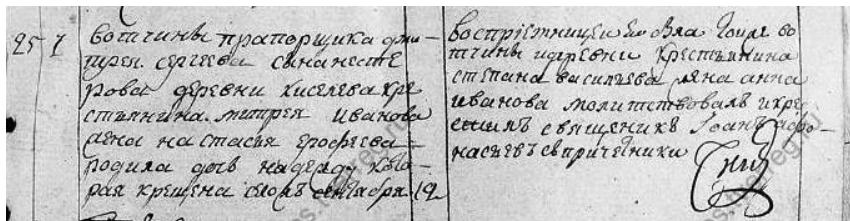 25 7 вотчины прапорщика дми–
трея сергеева сына несте
рова деревни киселева кре
стьянина митрея иванова
жена настасья ерофеева
родила дочь надежду кото–
рая крещена сентября 12
восприемницей была тоя же во
тчины и деревни крестьянина
степана васильева жена анна
иванова молитствовалъ и кре
стилъ священникъ Иоаннъ афо–
насьевъ съ причетники